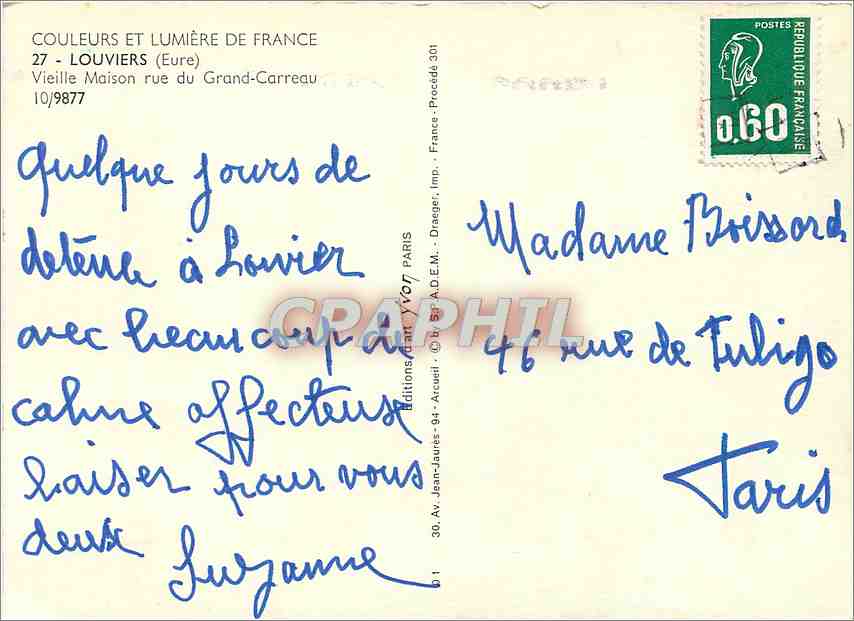 COULEURS ET LUMIÈRE DE FRANCE
27 - LOUVIERS (Eure)
Vieille Maison rue du Grand-Carreau
10/9877
Quelque jours de
detente à Louvier
avec beaucoup de
calme affecteuse
baiser pour vous
deux
Suzanne
Editions d'art yvon PARIS
30, Av. Jean-Jaurès - 94 - Arcueil - © by S.P.A.D.E.M. - Draeger, Imp. - France - Procédé 301
CPAPHIL
POSTES
REPUBLIQUE FRANÇAISE
0,60
Madame Boissard
46 rue de Turbigo
Paris